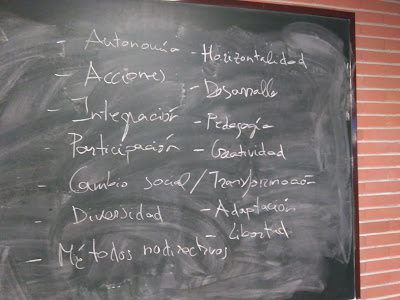 - Autonomía
- Horizontalidad
- Acciones
- Desarrollo
- Integración
- Pedagogía
- Participación
- Creatividad
- Cambio social/Transformación
- Diversidad
- Adaptación
- Libertad
- Métodos nodirectivos